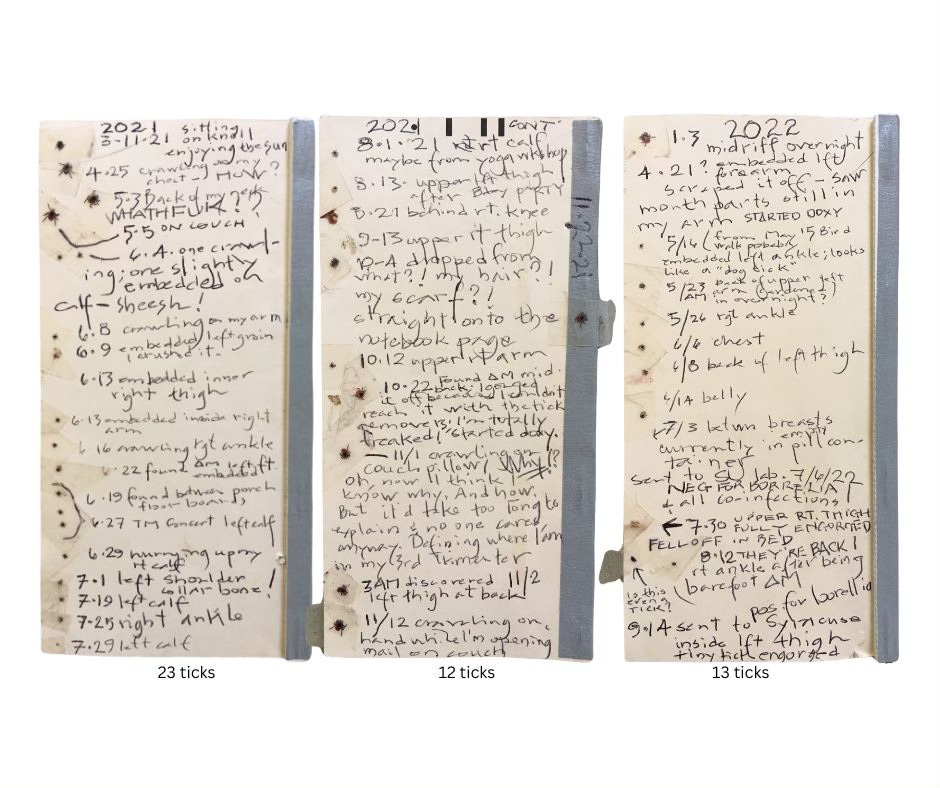 2021 sitting
3-11-21 on knoll
enjoying the sun
4.25 crawling on my
chest - HOW?
5.3 Back of my neck
WHATHFUK??
5.5 ON COUCH
6.4. one crawl-
ing; one slightly
embedded on
calf - sheesh!
6.8 crawling on my arm
6.9 embedded left groin
I crushed it.
6.13 embedded inner
right thigh
6.13 embedded inside right
arm
6.16 crawling rgt ankle
.22 found AM left ft
embedded
6.19 found between porch
floor boards
6.27 TM Concert left calf
6.29 hurrying up my
rt calf
7.1 left shoulder
collar bone!
7.19 left calf
7.25 right ankle
7.29 left calf
23 ticks
2021 CONT'
8.1.'21 rt calf
maybe from yoga wkshop
8.13. upper lft thigh
after Bday party
8.21 behind rt. knee
9-13 upper rt thigh
10-4 dropped from
what?! my hair?!
my scarf?!
straight onto the
notebook page
10.12 upper rt arm
10.22 found AM mid.
back; I gouged
it off because I couldn't
reach it with the tick
remover. I'm totally
freaked! Started doxy.
11/1 crawling on
couch pillow! Why!?
oh, now I think I
know why. And how.
But it'd take too long to
explain & no one cares
anyway. Defining where I am
in my 3rd Trimester
3AM discovered 11/2
left thigh at back!
11/12 crawling on
hand while I'm opening
mail on couch
12 ticks
2022
1.3 midriff overnight
4.21? embedded left
forearm
scraped it off - saw
mouth parts still in
my arm STARTED DOXY
5/16 (from May 15 Bird
walk probably
embedded left ankle; looks
like a "dog tick"
5/23 back of upper left
AM arm (gardened)
in overnight?
5/26 rgt ankle
6/6 chest
6/8 back of left thigh
6/14 belly
7/3 betwn breasts
currently in empty pill con-
tainer
sent to SU lab. 7/6/22
NEG FOR BORRELIA
& all co-infections
← 7.30 UPPER RT. THIGH
FULLY ENGORGED
FELL OFF IN BED
8.12 THEY'RE BACK!
rt ankle after being
barefoot AM
Is this
even a
TICK?
pos for borellia
9.14 sent to Syracuse
inside lft thigh
tiny tick engorged
13 ticks